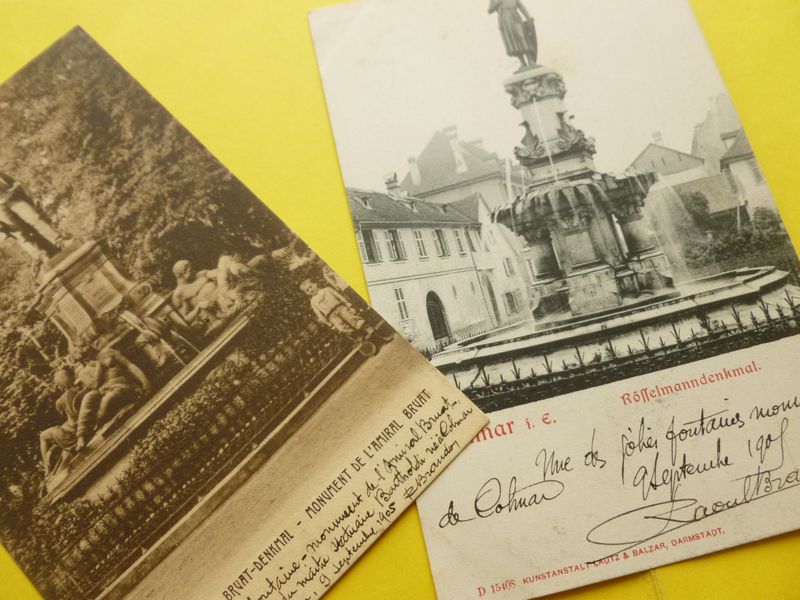 BRUAT-DENKMAL - MONUMENT DE L'AMIRAL BRUAT
fontaine - monument de l'Amiral Bruat -
du maître statuaire Bartholdi né à Colmar
9 Septembre 1905
mar i. E.
Rösselmanndenkmal.
Une des jolies fontaines monu
de Colmar
9 Septembre 1905
Raoul Bra
D 15408 KUNSTANSTALT LAUTZ & BALZAR, DARMSTADT.